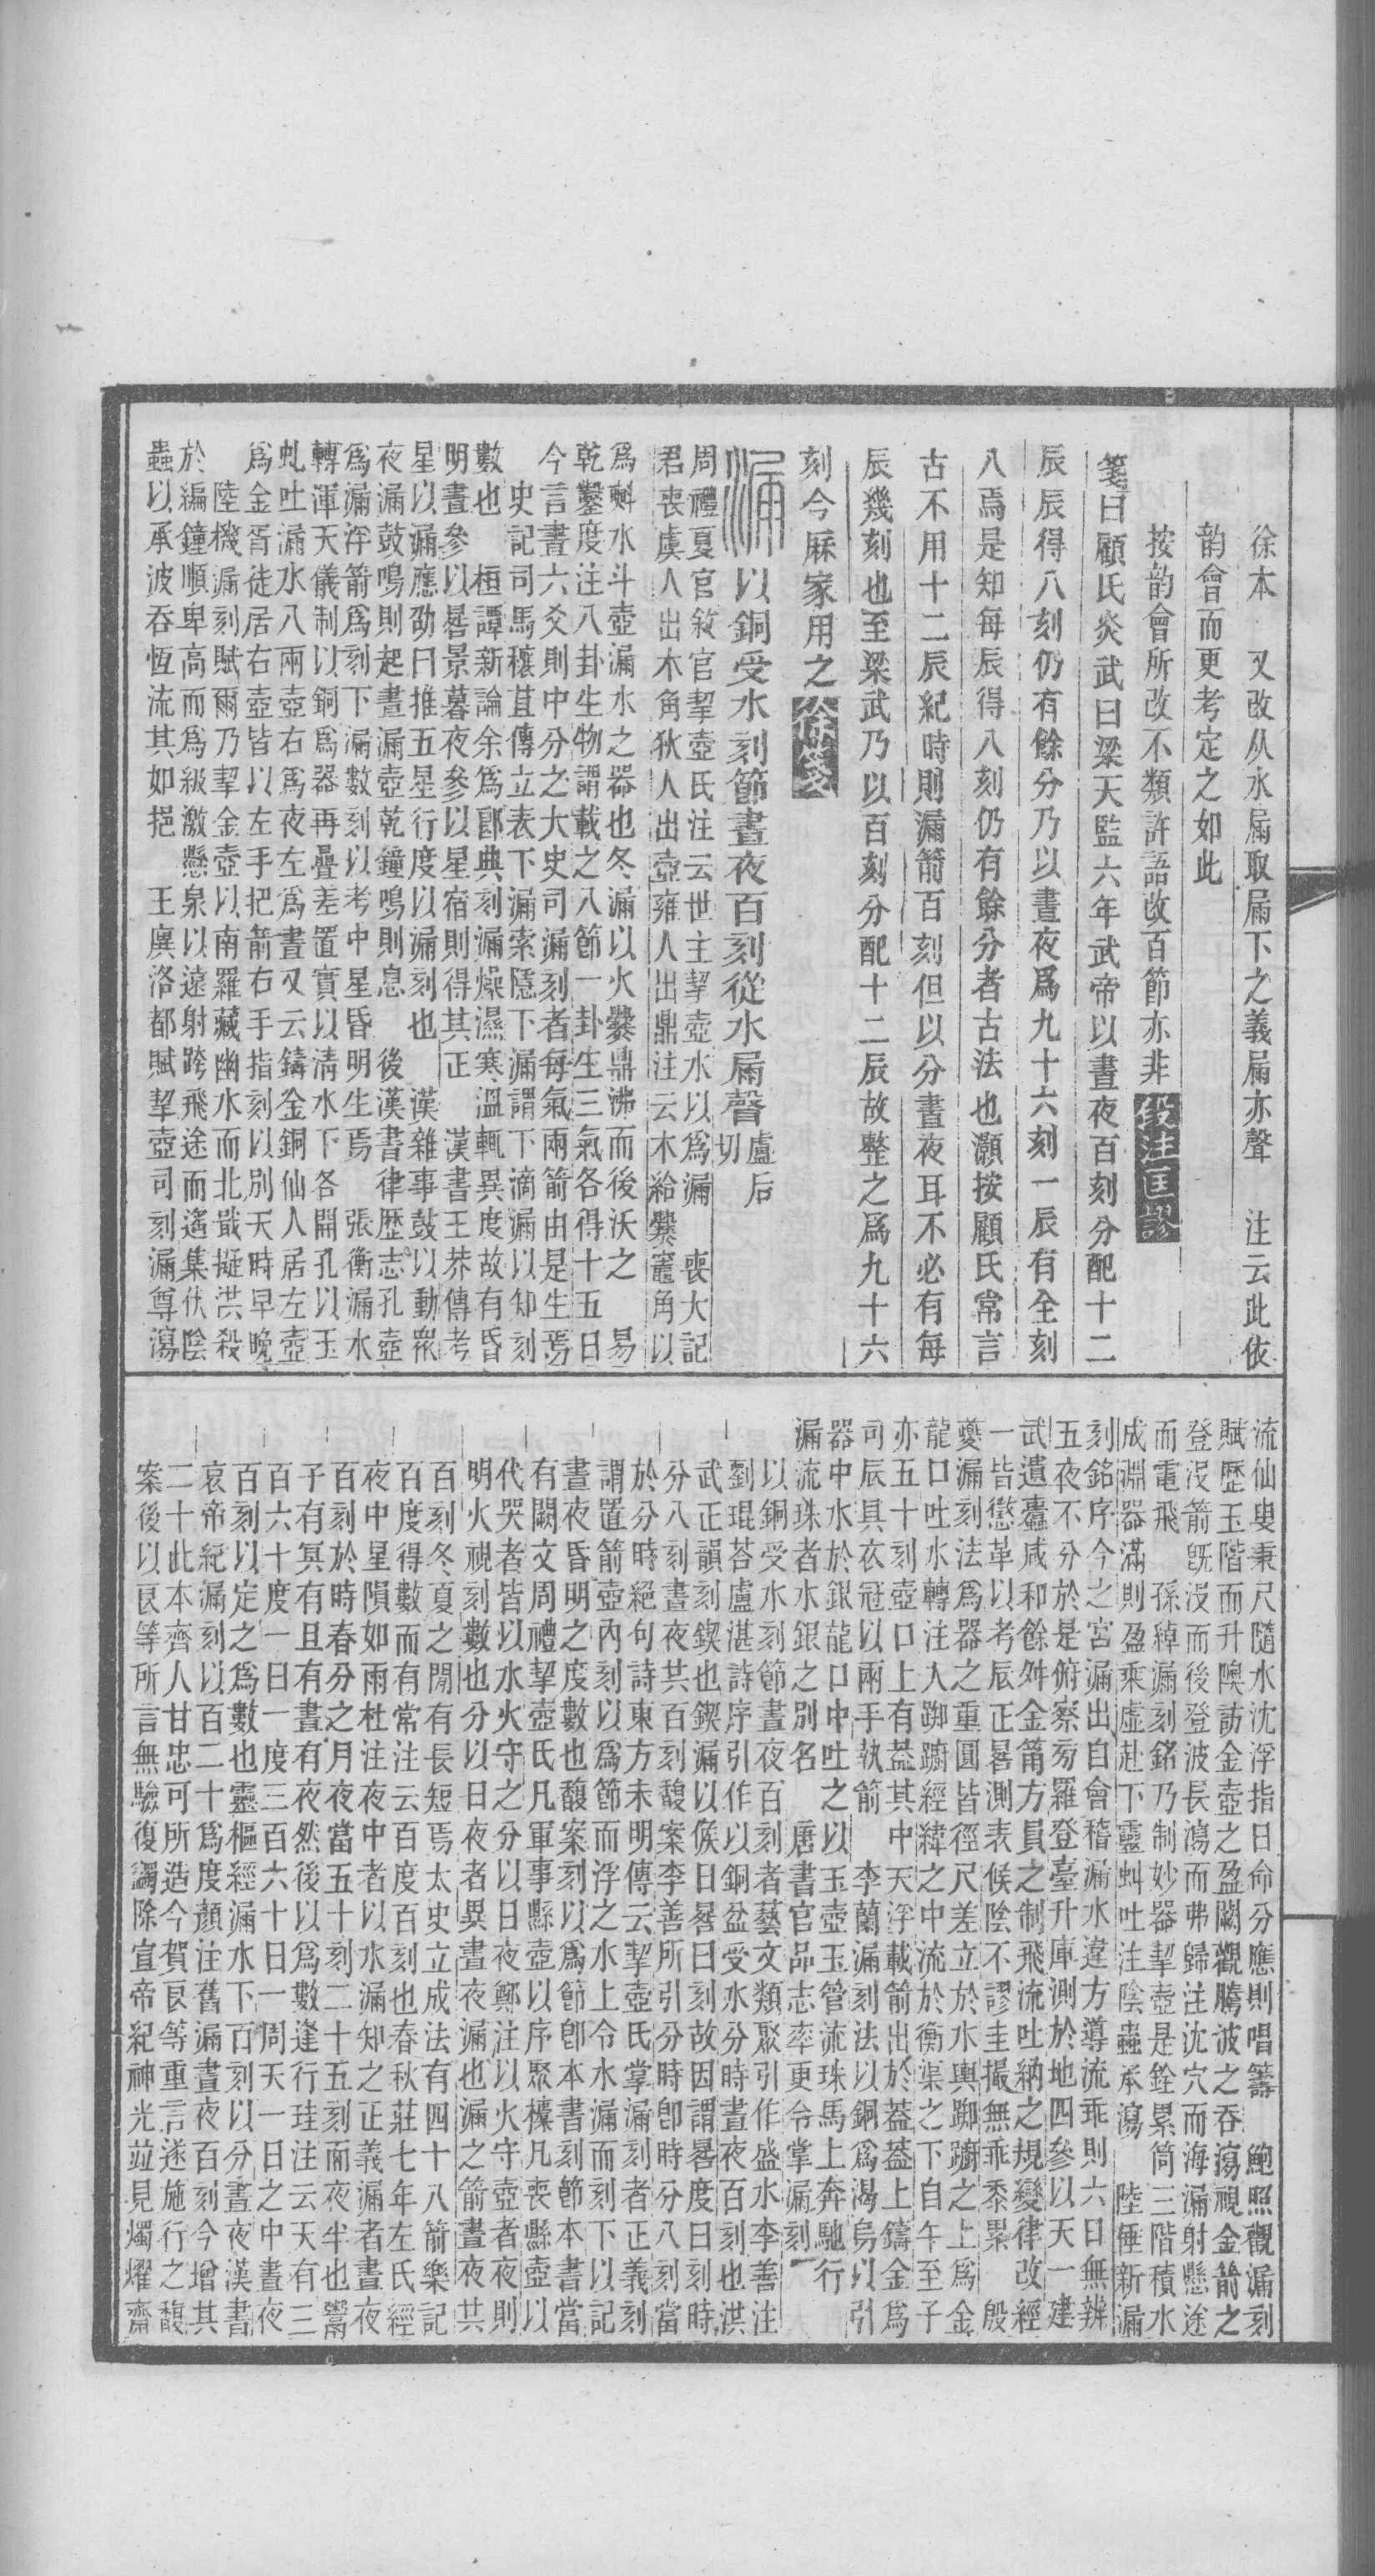 徐本　又改从水屚取屚下之義屚亦聲　注云此依
韵會而更考定之如此
按韵會所改不類許語改百節亦非段注匡謬
箋曰顧氏炎武曰梁天監六年武帝以晝夜百刻分配十二
辰辰得八刻仍有餘分乃以晝夜爲九十六刻一辰有全刻
八焉是知每辰得八刻仍有餘分者古法也灝按顧氏常言
古不用十二辰紀時則漏箭百刻但以分晝夜耳不必有每
辰幾刻也至梁武乃以百刻分配十二辰故整之爲九十六
刻今厤家用之徐箋
漏以銅受水刻節晝夜百刻從水屚聲盧后切
周禮夏官敘官挈壺氏注云世主挈壺水以爲漏　喪大記
君喪虞人出木角狄人出壺雍人出鼎注云木給爨竈角以
爲㪺水斗壺漏水之器也冬漏以火爨鼎沸而後沃之　易
乾鑿度注八卦生物謂載之八節一卦生三氣各得十五日
今言晝六爻則中分之大史司漏刻者每氣兩箭由是生焉
史記司馬穰苴傳立表下漏索隱下漏謂下滴漏以知刻
數也　桓譚新論余爲郎典刻漏燥濕寒溫輒異度故有昏
明晝參以晷景暮夜參以星宿則得其正　漢書王莽傳考
星以漏應劭曰推五星行度以漏刻也　漢雜事鼓以動衆
夜漏鼓鳴則起晝漏壺乾鐘鳴則息　後漢書律歷志孔壺
爲漏浮箭爲刻下漏數刻以考中星昏明生焉　張衡漏水
轉渾天儀制以銅爲器再疊差置實以清水下各開孔以玉
虬吐漏水八兩壺右爲夜左爲晝又云鑄金銅仙人居左壺
爲金胥徒居右壺皆以左手把箭右手指刻以別天時早晚
陸機漏刻賦爾乃挈金壺以南羅藏幽水而北戢擬洪殺
於編鐘順卑高而爲級激懸泉以遠射跨飛途而遙集伏陰
蟲以承波吞恆流其如挹　王廙洛都賦挈壺司刻漏尊瀉
流仙叟秉尺隨水沈浮指日命分應則唱籌　鮑照觀漏刻
賦歷玉階而升隩訪金壺之盈闕觀騰波之吞瀉視金箭之
登沒箭旣沒而後登波長瀉而弗歸注沈穴而海漏射懸途
而電飛　孫綽漏刻銘乃制妙器挈壺是銓累筒三階積水
成淵器滿則盈乘虛赴下靈虯吐注陰蟲承瀉　陸倕新漏
刻銘序今之宮漏出自會稽漏水違方導流乖則六日無辨
五夜不分於是俯察旁羅登臺升庫測於地四參以天一建
武遺蠹咸和餘舛金筩方員之制飛流吐納之規變律改經
一皆懲革以考辰正晷測表候陰不謬圭撮無乖黍累　殷
夔漏刻法爲器之重圓皆徑尺差立於水輿踟躕之上爲金
龍口吐水轉注入踟躕經緯之中流於衡渠之下自午至子
亦五十刻壺口上有蓋其中天浮載箭出於蓋蓋上鑄金爲
司辰具衣冠以兩手執箭　李蘭漏刻法以銅爲渴烏以引
器中水於銀龍口中吐之以玉壺玉管流珠馬上奔馳行
漏流珠者水銀之別名　唐書官品志率更令掌漏刻
以銅受水刻節晝夜百刻者藝文類聚引作盛水李善注
劉琨荅盧湛詩序引作以銅盆受水分時晝夜百刻也洪
武正韻刻鍥也鍥漏以候日晷曰刻故因謂晷度曰刻時
分八刻晝夜共百刻馥案李善所引分時卽時分八刻當
於分時絕句詩東方未明傳云挈壺氏掌漏刻者正義刻
謂置箭壺內刻以爲節而浮之水上令水漏而刻下以記
晝夜昏明之度數也馥案刻以爲節卽本書刻節本書當
有闕文周禮挈壺氏凡軍事縣壺以序聚㯓凡喪縣壺以
代哭者皆以水火守之分以日夜鄭注以火守壺者夜則
明火視刻數也分以日夜者異晝夜漏也漏之箭晝夜共
百刻冬夏之閒有長短焉太史立成法有四十八箭樂記
百度得數而有常注云百度百刻也春秋莊七年左氏經
夜中星隕如雨杜注夜中者以水漏知之正義漏者晝夜
百刻於時春分之月夜當五十刻二十五刻而夜半也鬻
子有冥有旦有晝有夜然後以爲數逢行珪注云天有三
百六十度一日一度三百六十日一周天一日之中晝夜
百刻以定之爲數也靈樞經漏水下百刻以分晝夜漢書
哀帝紀漏刻以百二十爲度顏注舊漏晝夜百刻今增其
二十此本齊人甘忠可所造今賀良等重言遂施行之馥
案後以良等所言無驗復蠲除宣帝紀神光竝見燭燿齋